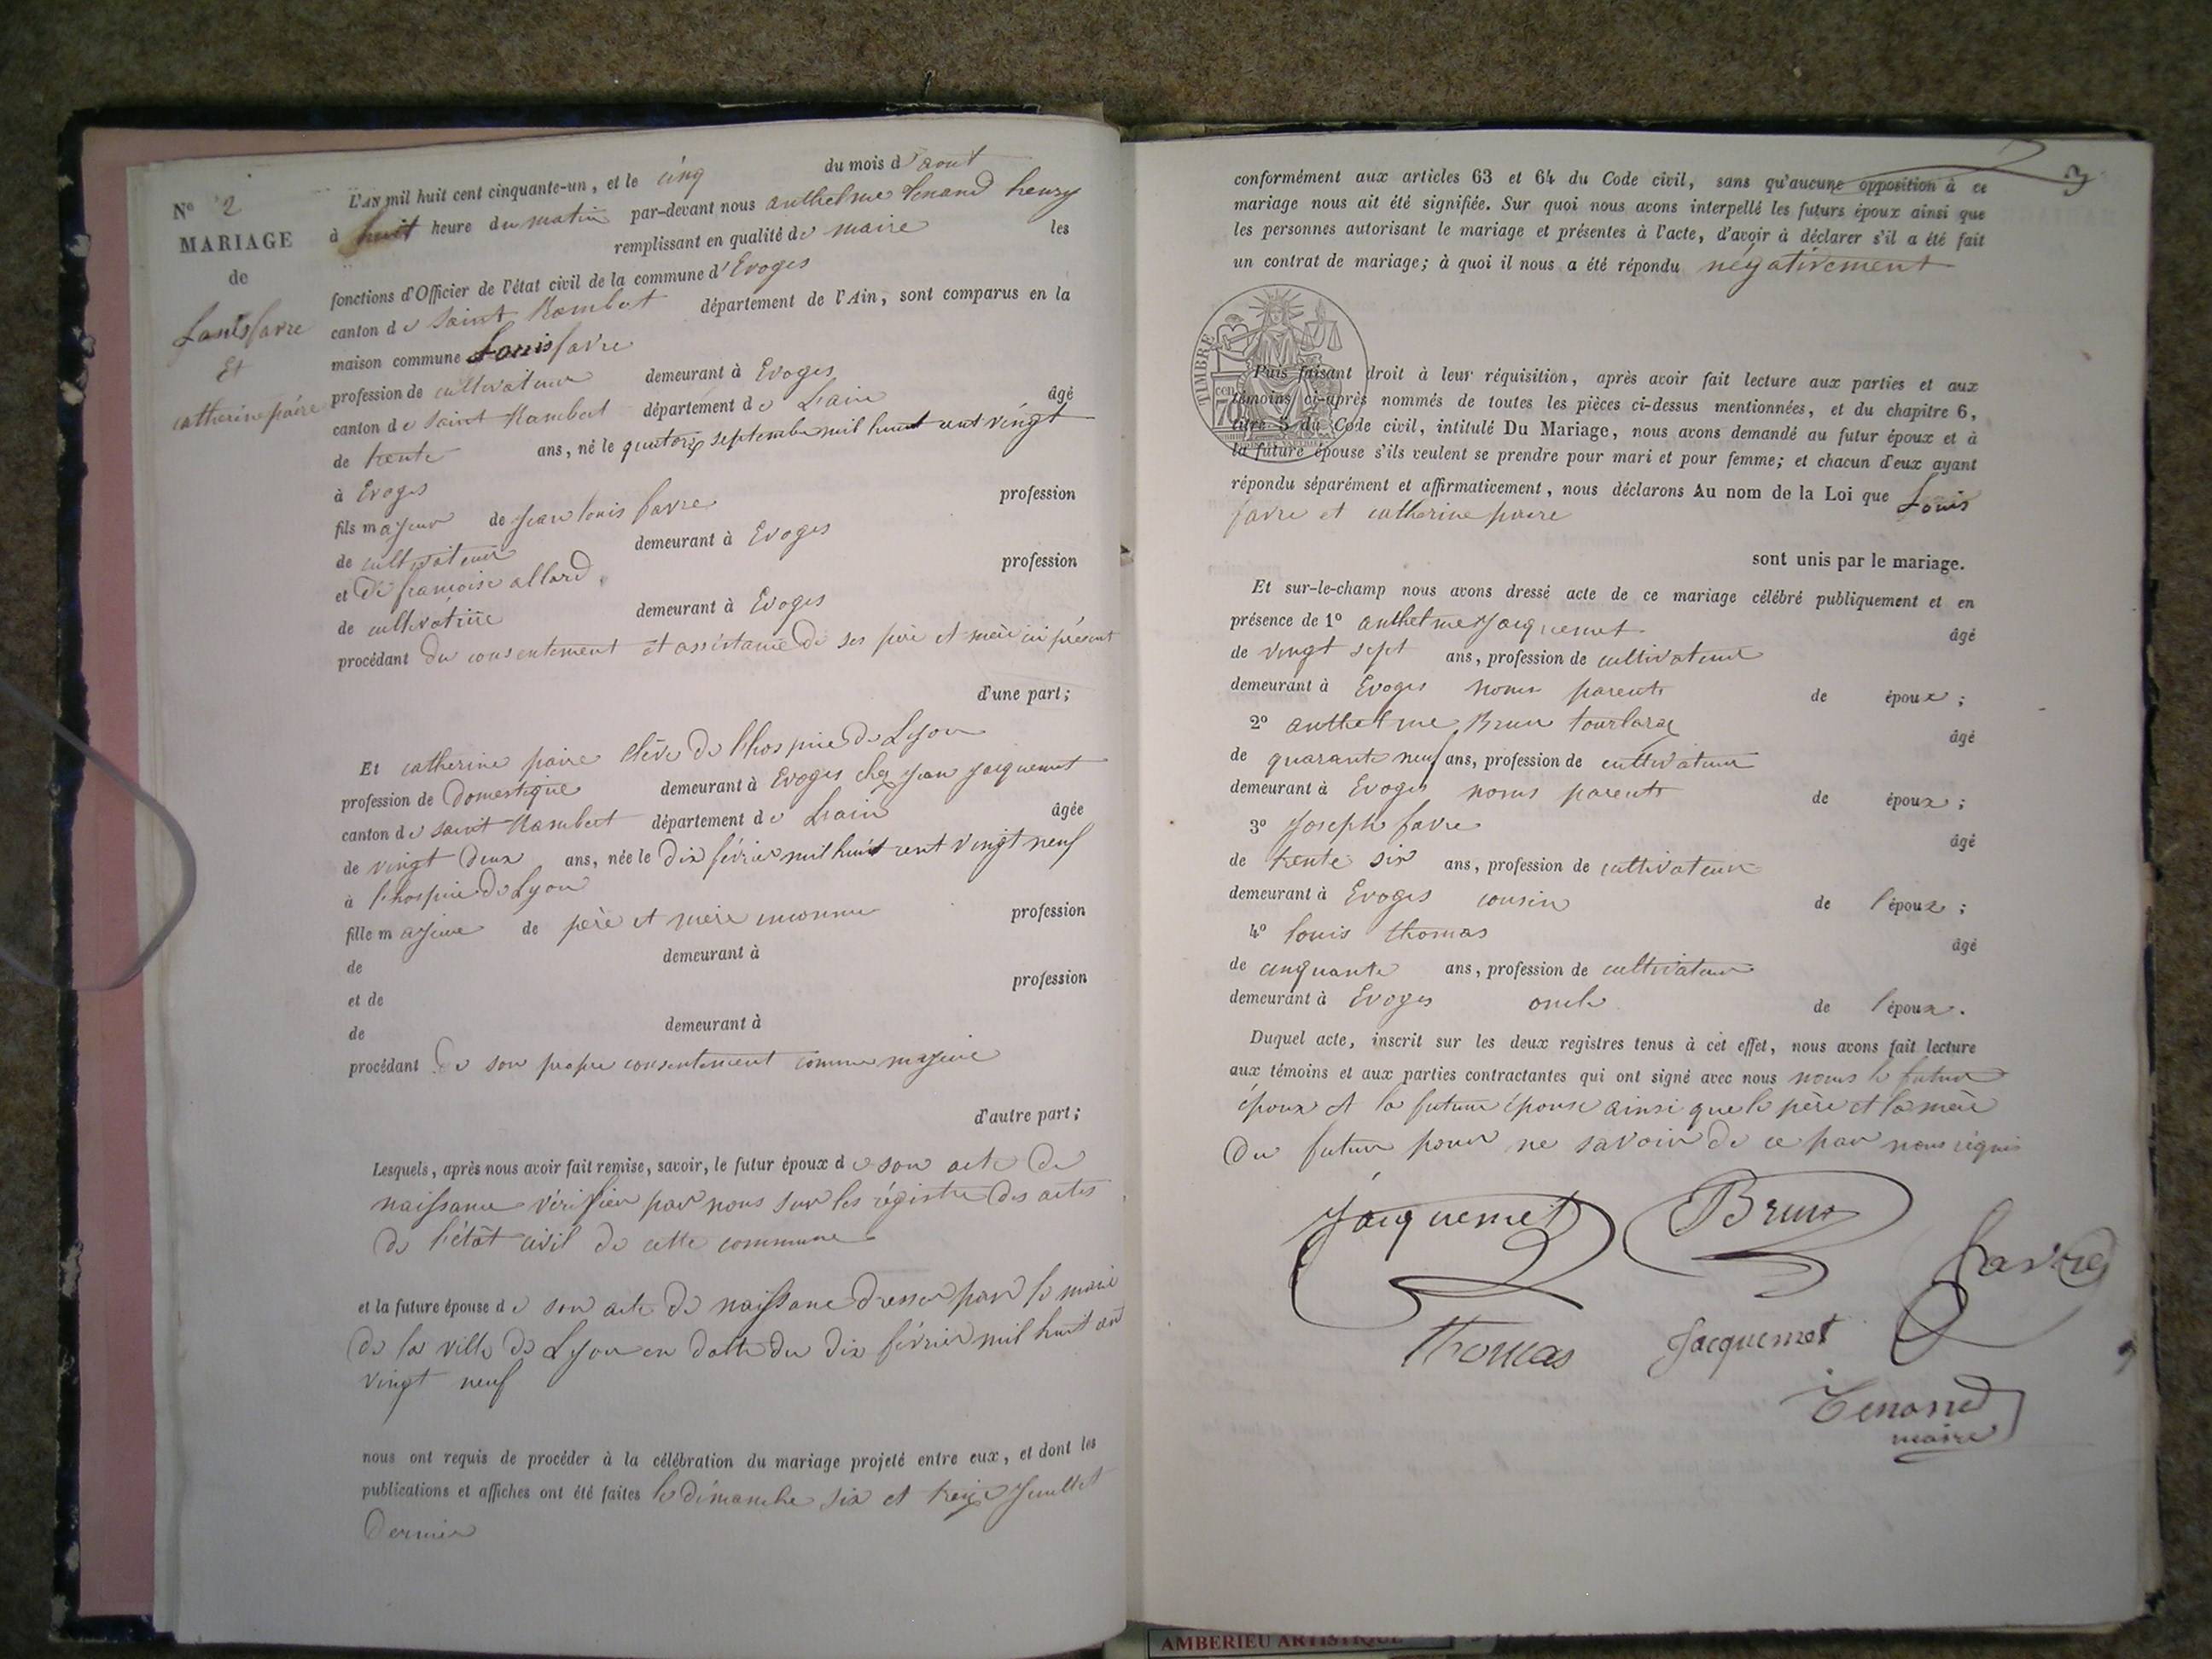 N° 2
MARIAGE
de
Louis favre
Et
catherine paire
L'AN mil huit cent cinquante-un, et le cinq du mois d'aout
à huit heure du matin par-devant nous anthelme tenand henry
remplissant en qualité de maire les
fonctions d'Officier de l'état civil de la commune d'Evoges
canton de saint Rambert département de l'Ain, sont comparus en la
maison commune Louis favre
profession de cultivateur demeurant à Evoges
canton de saint Rambert département de L'ain âgé
de trente ans, né le quatorze septembre mil huit cent vingt
à Evoges
fils majeur de jean louis favre profession
de cultivateur demeurant à Evoges
et De françoise allard profession
de cultivatrice demeurant à Evoges
procédant du consentement et assistance De ses père et mère ici présent
d'une part;
Et catherine paire élève De l'hospice De Lyon
profession de Domestique demeurant à Evoges chez jean jacquemet
canton de saint Rambert département de L'ain âgée
de vingt Deux ans, née le Dix février mil huit cent vingt neuf
à l'hospice De Lyon
fille majeure de père et mère inconnue profession
de demeurant à
et de profession
de demeurant à
procédant De son propre consentement comme majeure
d'autre part;
Lesquels, après nous avoir fait remise, savoir, le futur époux de son acte De
naissance vérifier par nous sur les régistre Des actes
De l'état civil de cette commune
et la future épouse de son acte De naissance Dresser par le maire
De la ville De Lyon en Datte Du Dix février mil huit cent
vingt neuf
nous ont requis de procéder à la célébration du mariage projeté entre eux, et dont les
publications et affiches ont été faites le Dimanche six et treize juillet
Dernier
3
conformément aux articles 63 et 64 du Code civil, sans qu'aucune opposition à ce
mariage nous ait été signifiée. Sur quoi nous avons interpellé les futurs époux ainsi que
les personnes autorisant le mariage et présentes à l'acte, d'avoir à déclarer s'il a été fait
un contrat de mariage; à quoi il nous a été répondu négativement
TIMBRE
cen
70
Puis faisant droit à leur réquisition, après avoir fait lecture aux parties et aux
témoins ci-après nommés de toutes les pièces ci-dessus mentionnées, et du chapitre 6,
titre 5 du Code civil, intitulé Du Mariage, nous avons demandé au futur époux et à
la future épouse s'ils veulent se prendre pour mari et pour femme; et chacun d'eux ayant
répondu séparément et affirmativement, nous déclarons Au nom de la Loi que Louis
favre et catherine paire
sont unis par le mariage.
Et sur-le-champ nous avons dressé acte de ce mariage célébré publiquement et en
présence de 1° anthelme jacquemet âgé
de vingt sept ans, profession de cultivateur
demeurant à Evoges nons parents de époux;
2° anthelme Brun âgé
de quarante neuf ans, profession de cultivateur
demeurant à Evoges nons parents de époux;
3° joseph favre âgé
de trente six ans, profession de cultivateur
demeurant à Evoges cousin de l'époux;
4° louis thomas âgé
de cinquante ans, profession de cultivateur
demeurant à Evoges oncle de l'époux.
Duquel acte, inscrit sur les deux registres tenus à cet effet, nous avons fait lecture
aux témoins et aux parties contractantes qui ont signé avec nous nons le futur
époux et la future épouse ainsi que le père et la mère
Du futur pour ne savoir De ce par nous réquis
Jacquemet
Brun
favre
Thomas
Jacquemet
Tenand
maire
AMBERIEU ARTISTIQUE